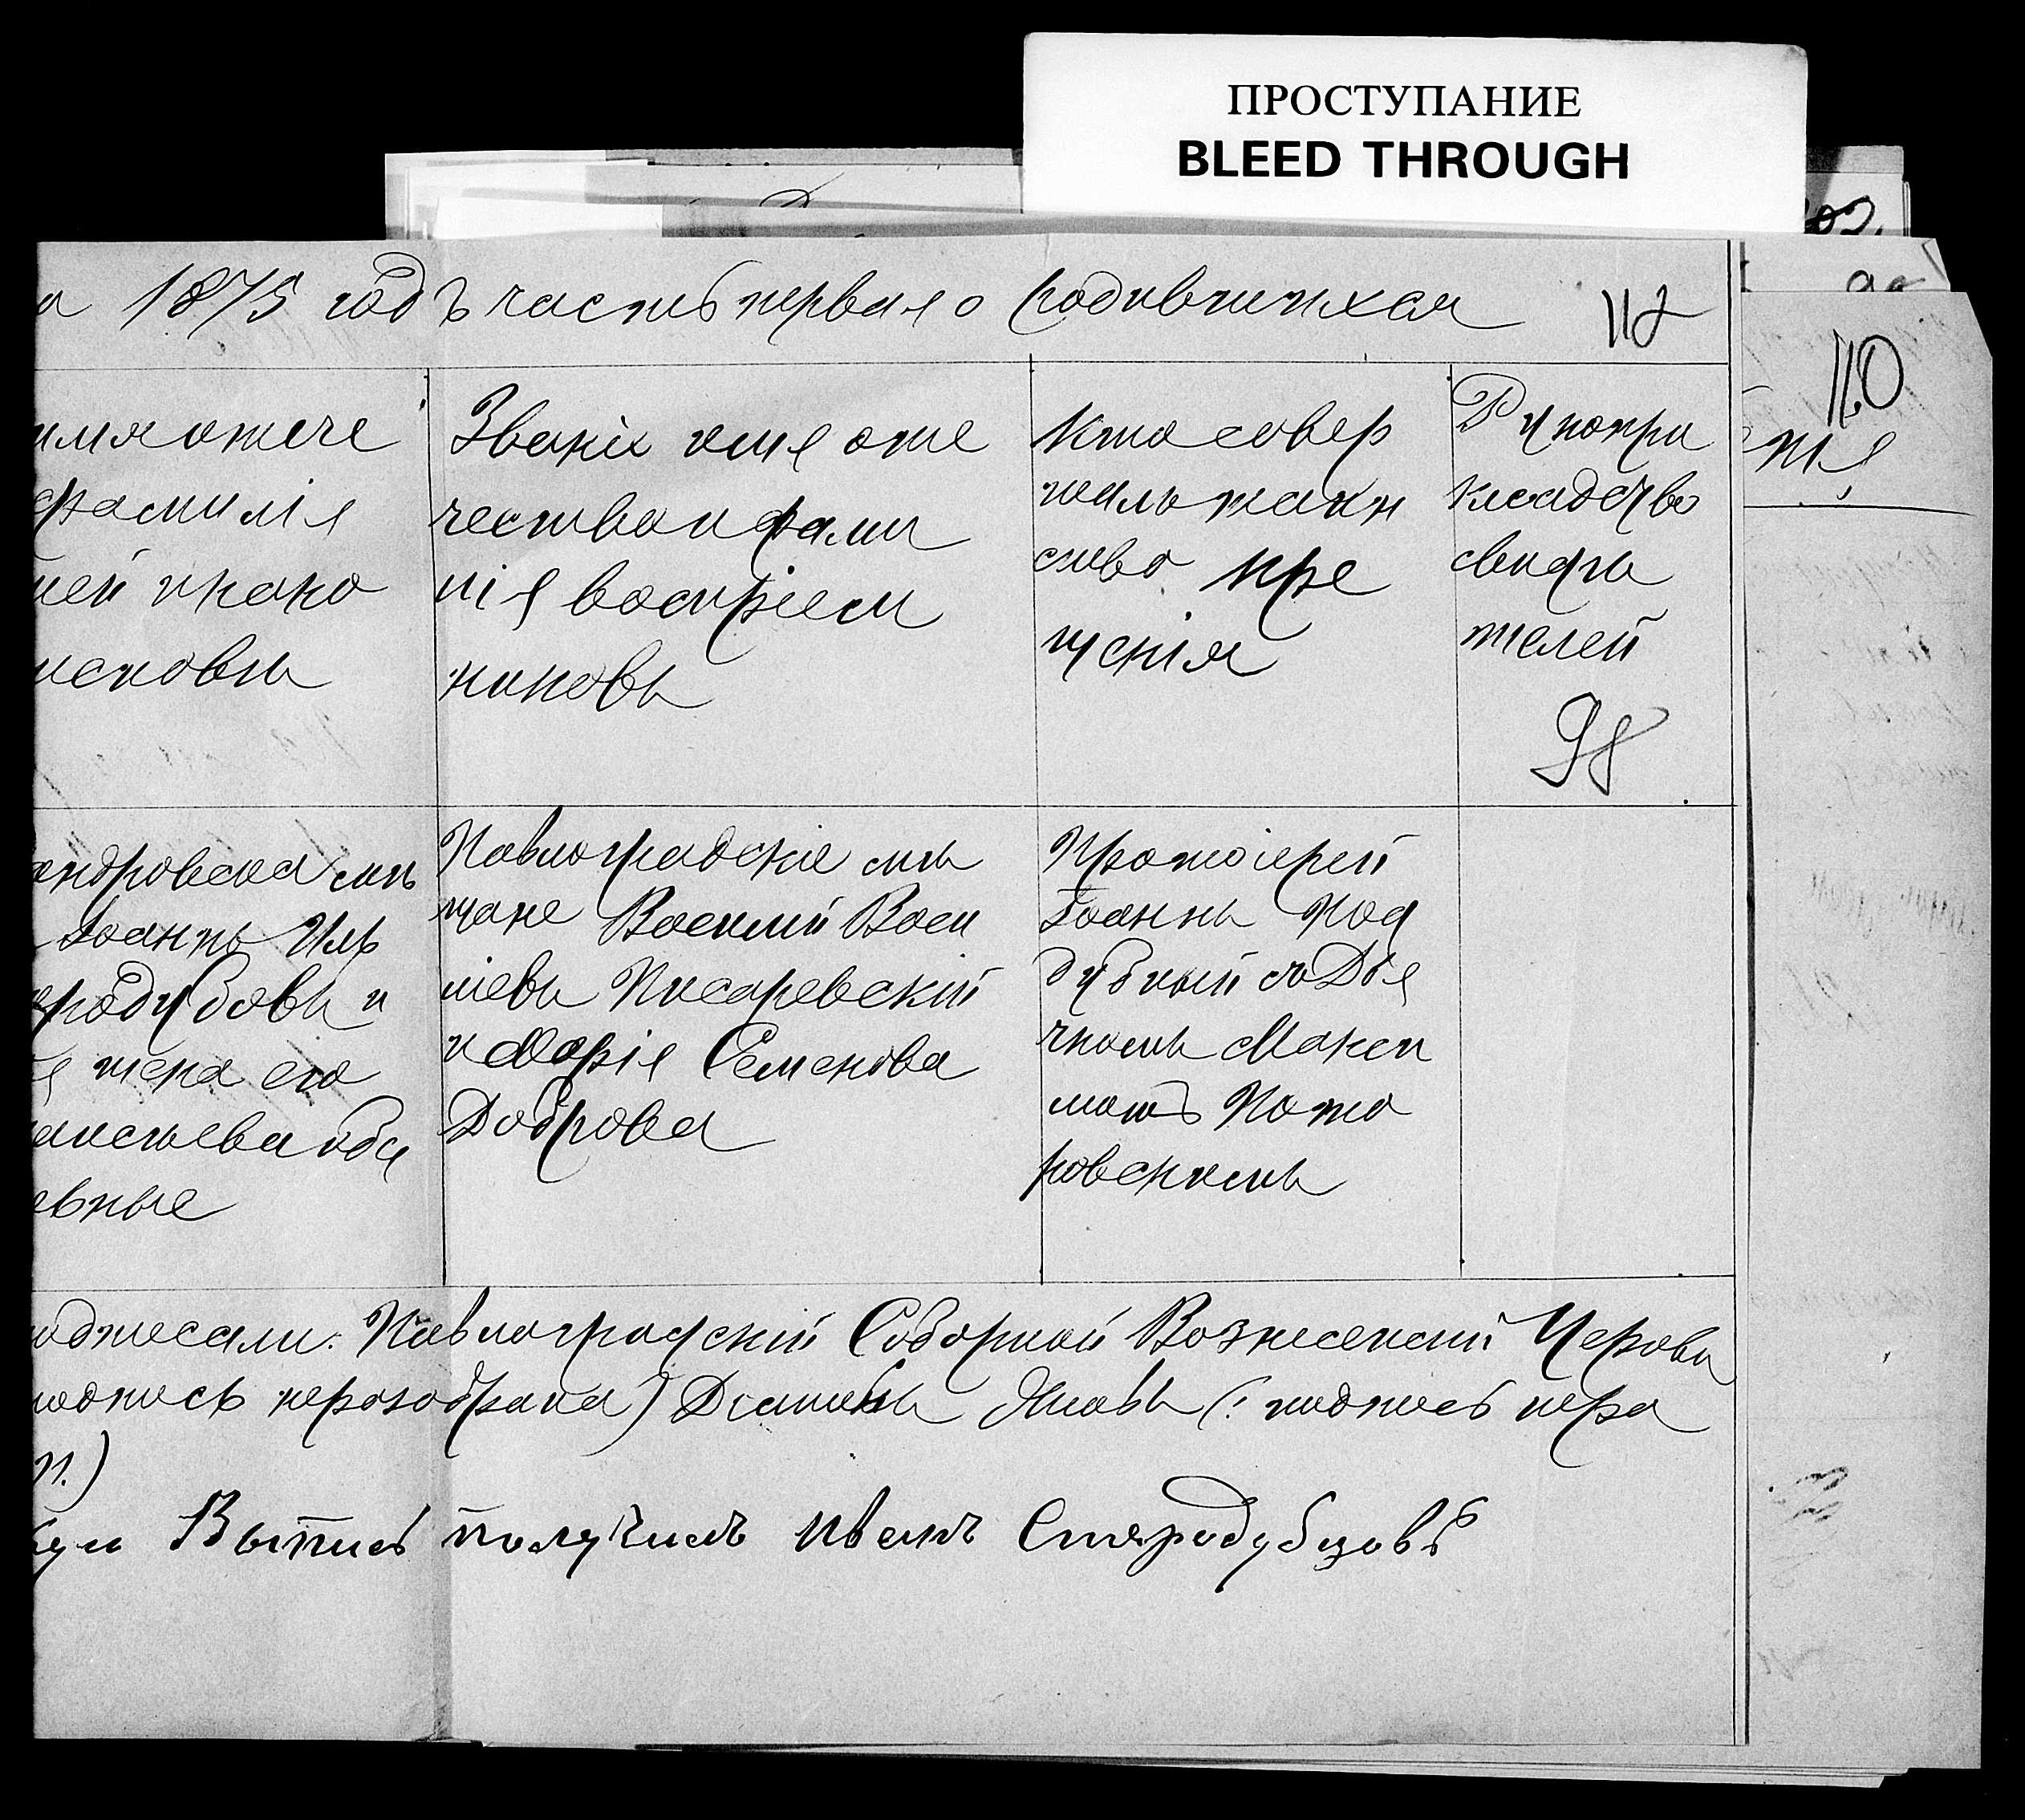 ПРОСТУПАНИЕ
BLEED THROUGH
а 1875 годъ часть первая о родившихся 112
110
имя отече
фамилія
ней и како
исповѣ
Званіе имя оте
чество и фами
лія воспріем
никовъ
Кто совер
шалъ таин
ство кре
щенія
Рукопри
кладство
свидѣ
телей
98
андровская мѣ
Іоаннъ Иль
родубовъ и
я жена его
оба
Павлоградскіе мѣ
щане Василій Васи
ліевъ Писаревскій
и Марія Семенова
Доброва
Протоіерей
Іоаннъ Под
дубный съ Дья
чкомъ Макси
момъ Пото
ровскимъ
одписали: Павлоградскій Соборной Вознесенскій Церкви
подпись неразобрана) Яковъ (: подпись нера
Выпись получилъ Иванъ Стародубцовъ